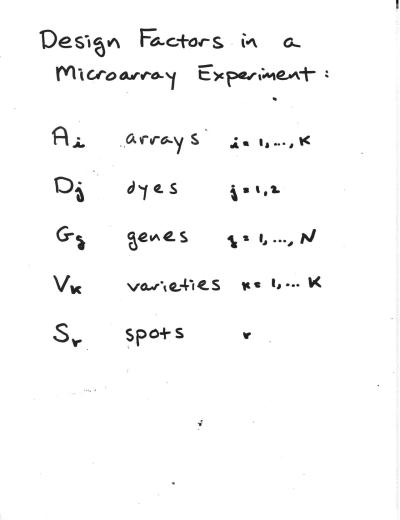 Design Factors in a
Microarray Experiment:
Ai arrays i = 1, ..., K
Dj dyes j = 1, 2
Gg genes g = 1, ..., N
Vk varieties k = 1, ... K
Sr spots r